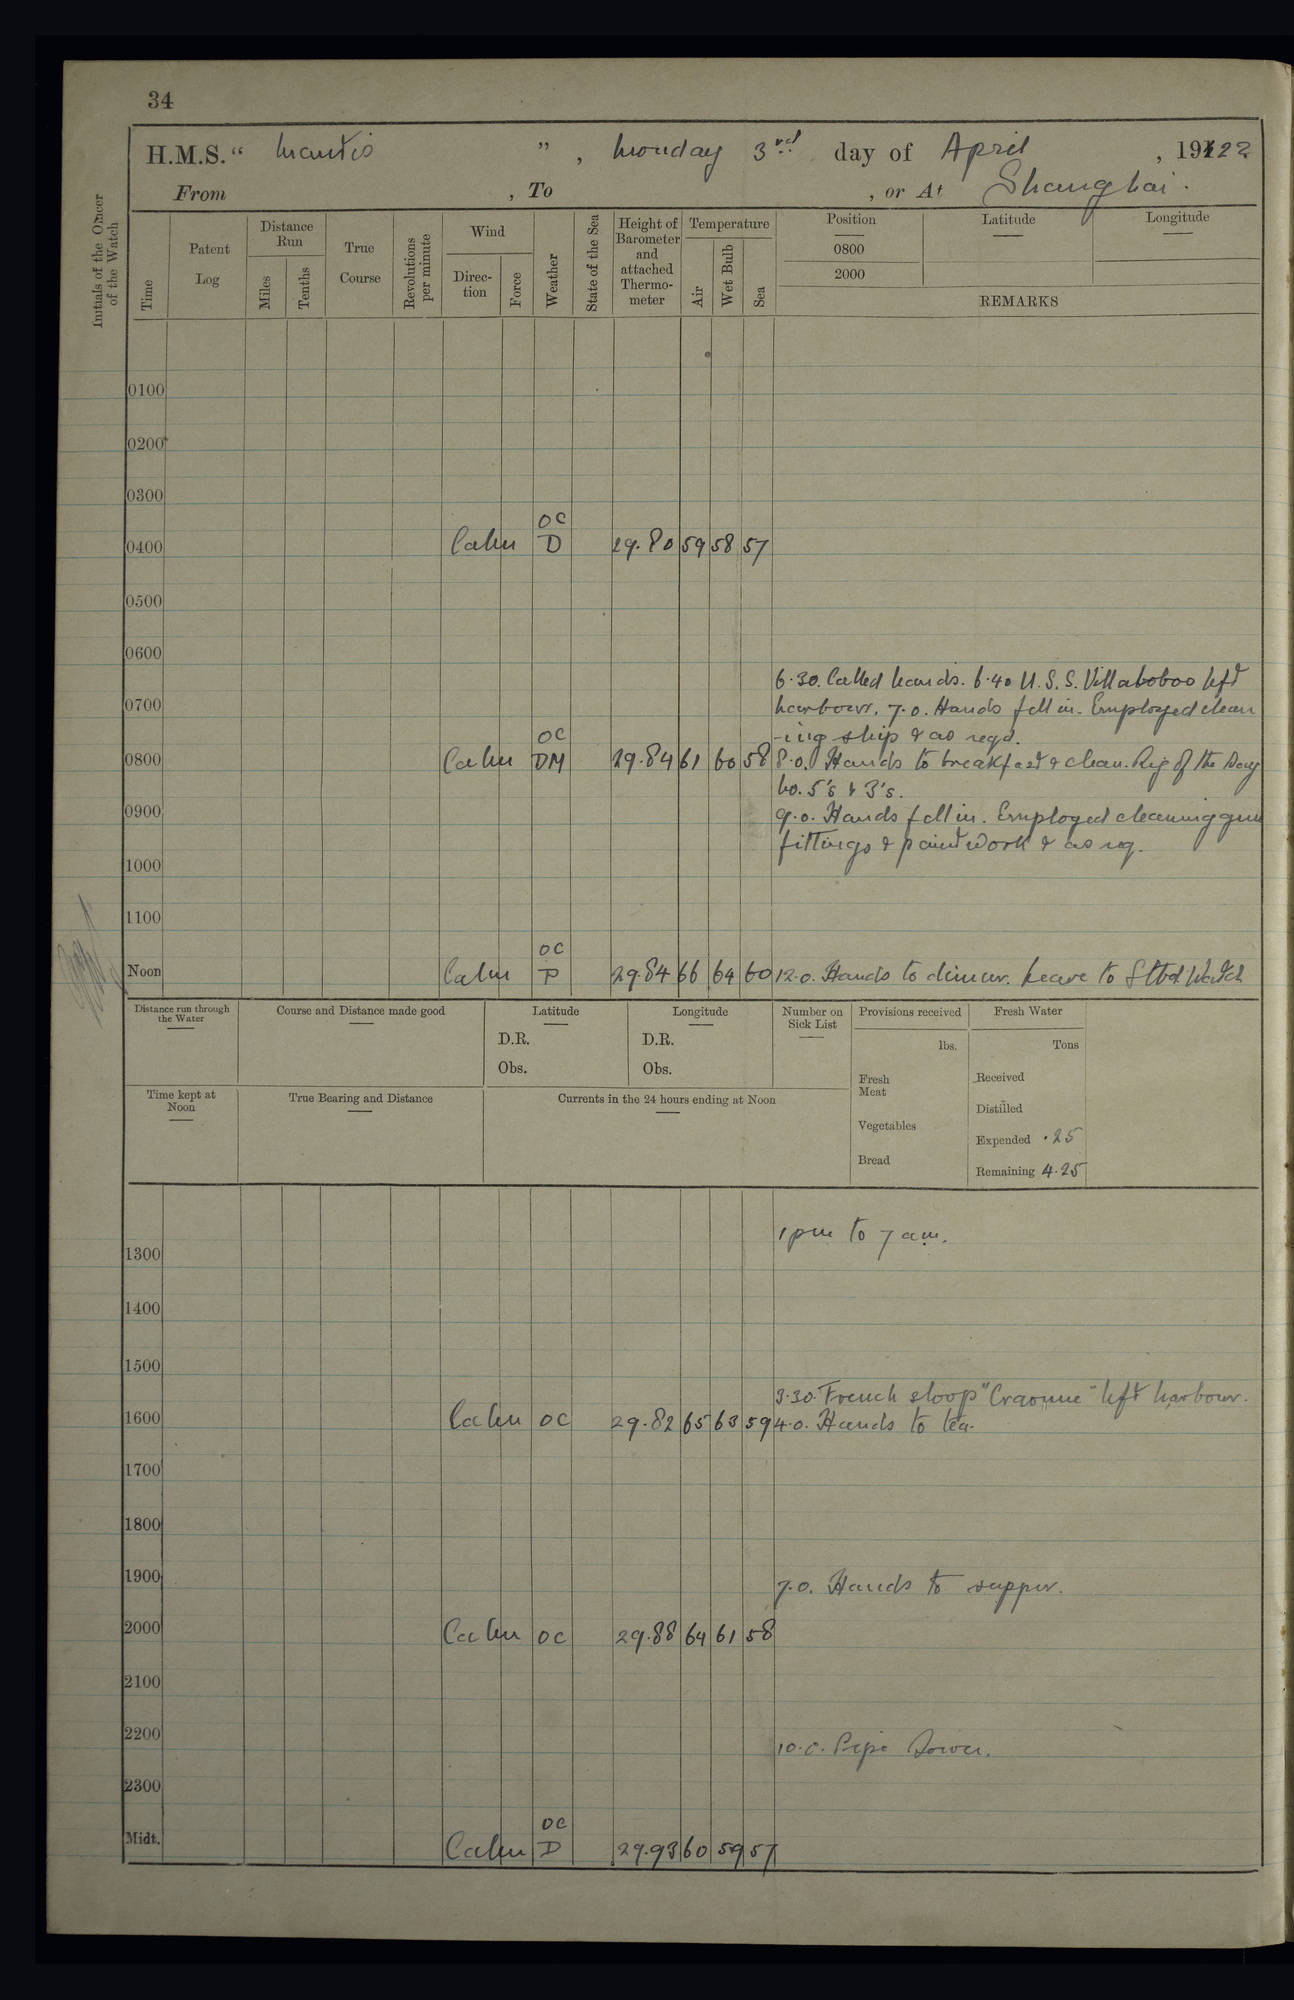 34
H.M.S. “ Mantis ” , Monday 3rd day of April , 1922
From , To , or At Shanghai.
Initials of the Officer of the Watch
Time
Patent Log
Distance Run
Miles Tenths
True Course
Revolutions per minute
Wind
Direction Force
Weather
State of the Sea
Height of Barometer and attached Thermometer
Temperature
Air Wet Bulb Sea
Position Latitude Longitude
0800
2000
REMARKS
0100
0200
0300
OC
0400 Calm D 29.80 59 58 57
0500
0600
6.30. Called hands. 6.40 U.S.S. Villaboboo left
0700 harbour. 7.0. Hands fell in. Employed clean
OC -ing ship & as reqd.
0800 Calm DM 29.84 61 60 58 8.0. Hands to breakfast & clean. Rig of the Day
No. 5's & 3's.
0900 9.0. Hands fell in. Employed cleaning gun
fittings & paintwork & as req.
1000
1100
OC
Noon Calm P 29.84 66 64 60 12.0. Hands to dinner. Leave to Stbd. Watch
Distance run through the Water
Course and Distance made good
Latitude
D.R.
Obs.
Longitude
D.R.
Obs.
Number on Sick List
Provisions received
lbs.
Fresh Meat
Vegetables
Bread
Fresh Water
Tons
Received
Distilled
Expended .25
Remaining 4.25
Time kept at Noon
True Bearing and Distance
Currents in the 24 hours ending at Noon
1 pm to 7 am.
1300
1400
1500
3.30. French sloop "Craonne" left harbour.
1600 Calm OC 29.82 65 63 59 4.0. Hands to tea.
1700
1800
1900 7.0. Hands to supper.
2000 Calm OC 29.88 64 61 58
2100
2200 10.0. Pipe down.
2300
OC
Midt. Calm D 29.93 60 59 57